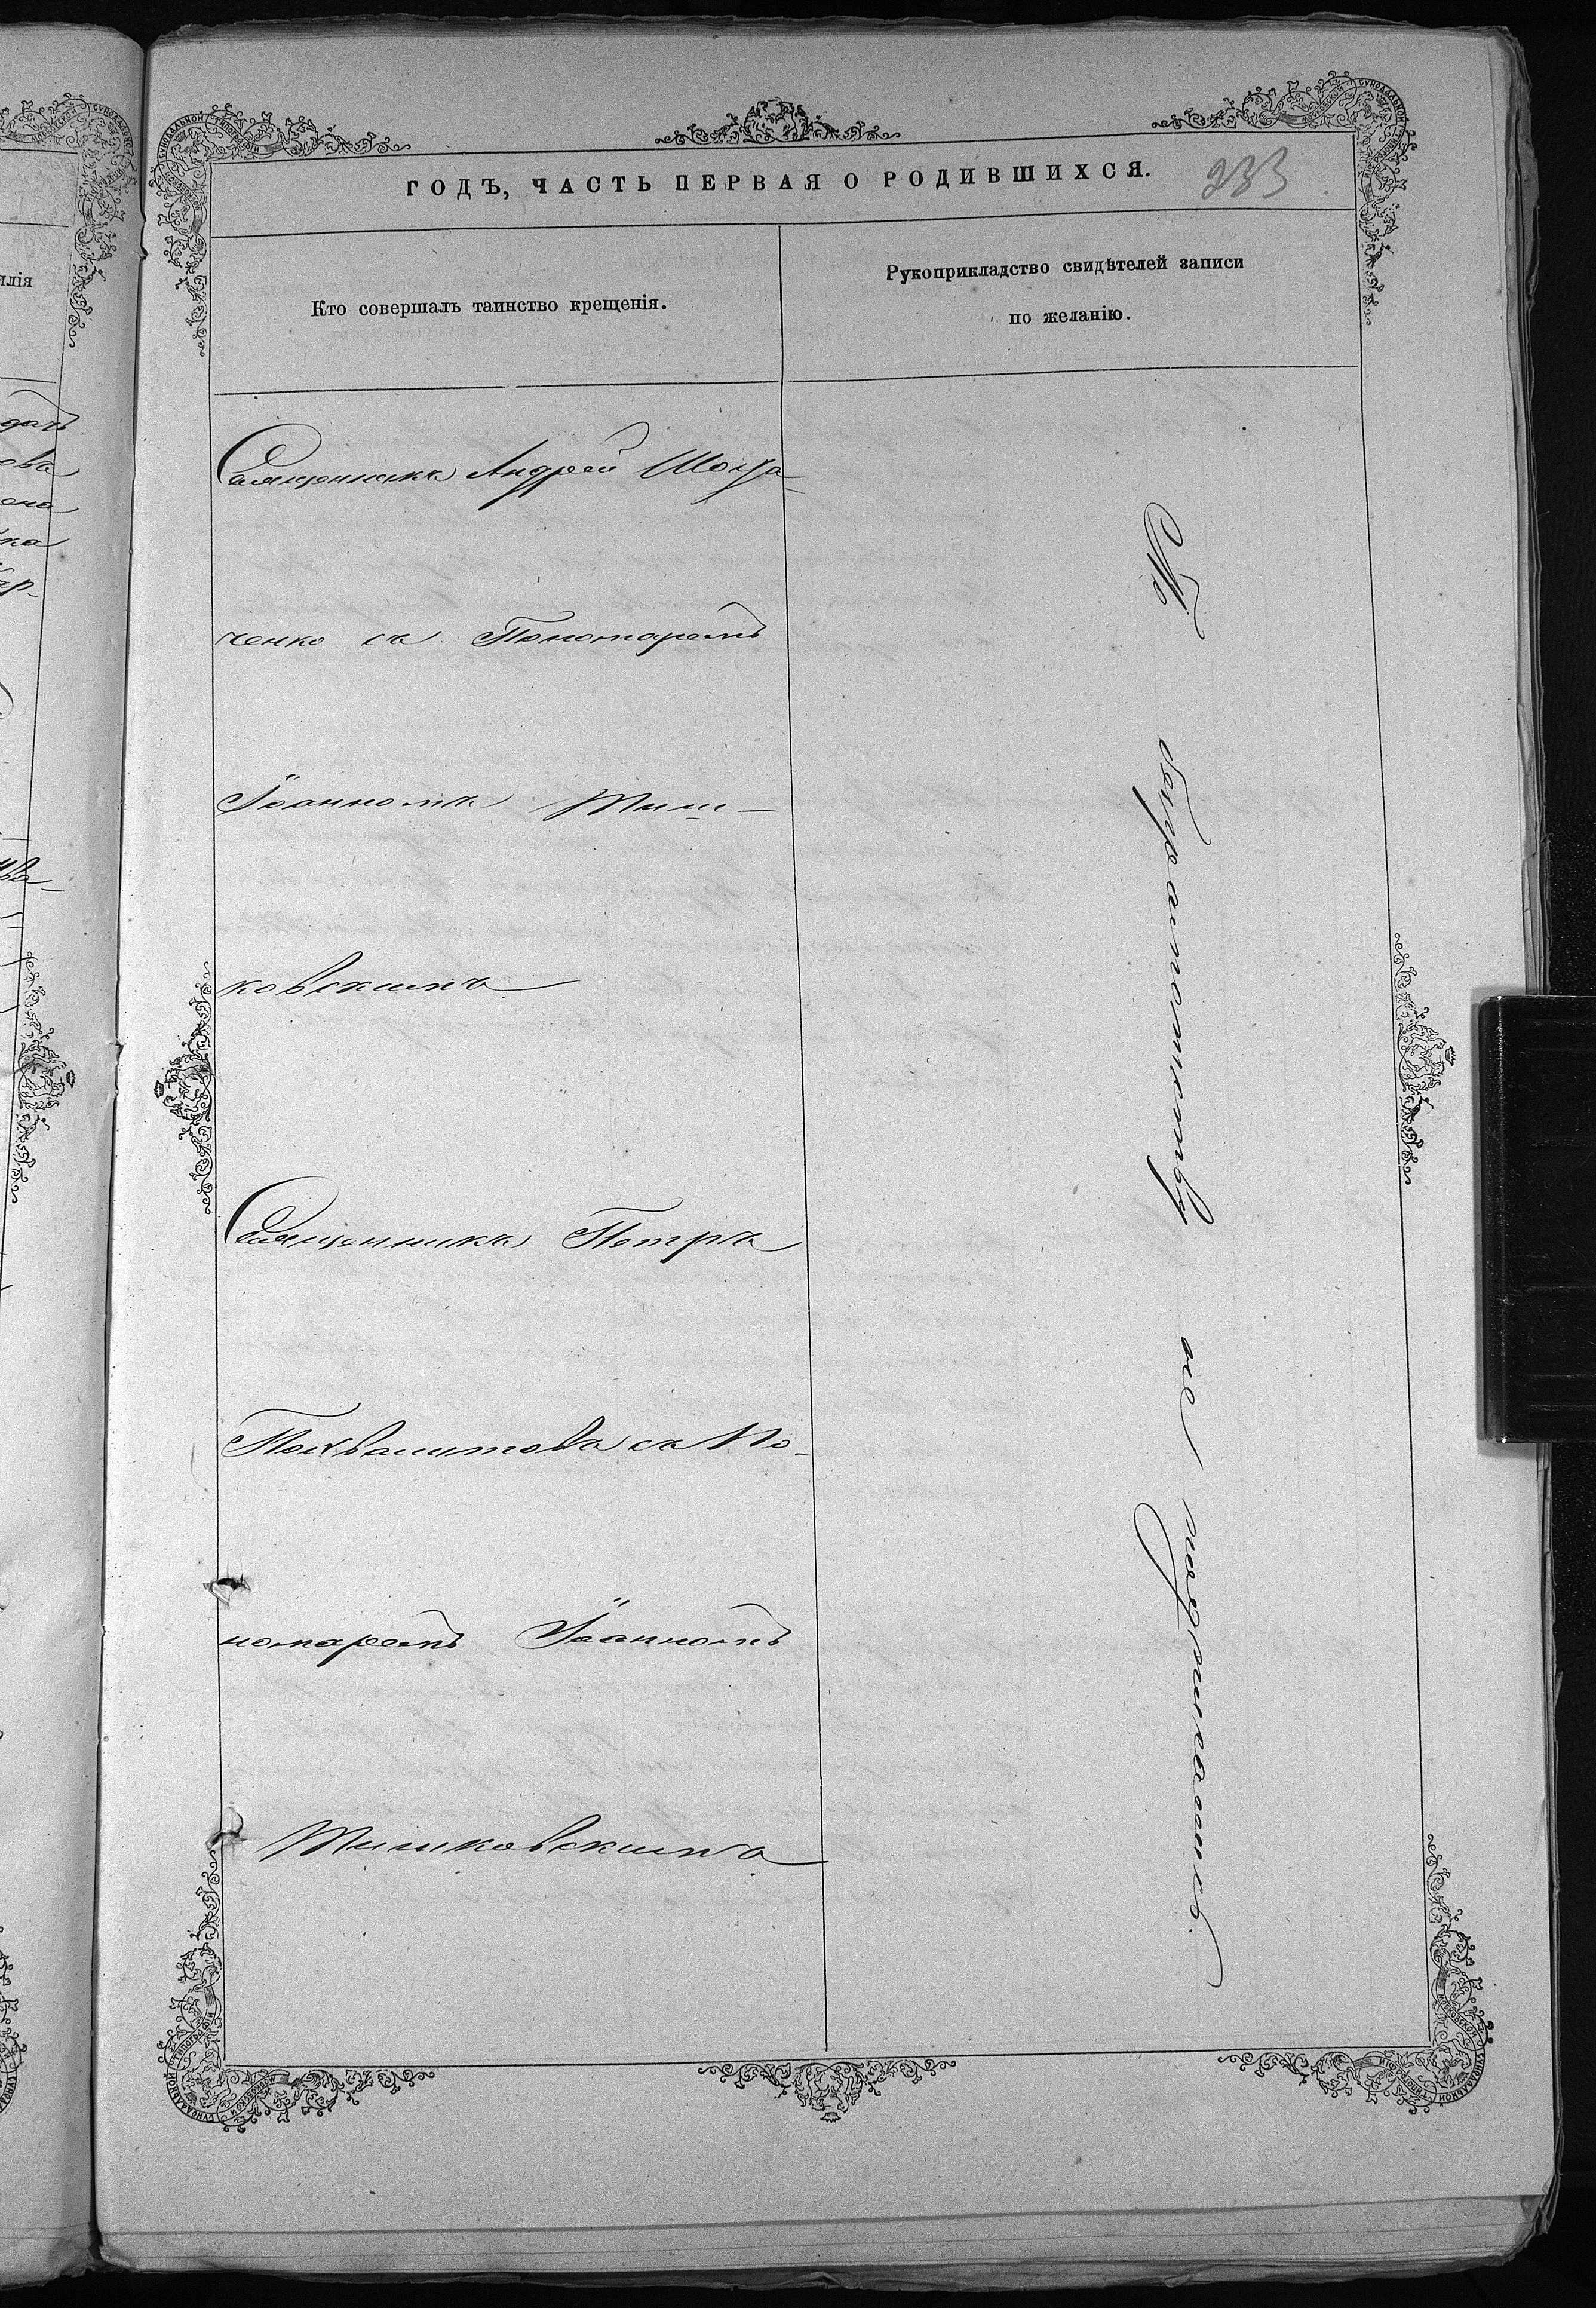 ГОДЪ, ЧАСТЬ ПЕРВАЯ О РОДИВШИХСЯ. 233
Кто совершалъ таинство крещенія.
Рукоприкладство свидѣтелей записи
по желанію.
Священникъ Андрей
ченко съ Пономаремъ
Іоанномъ Тиш-
ковскимъ
Священникъ Петръ
съ По-
номаремъ Іоанномъ
Тишковскимъ
По безграмотству не подписались.
илія